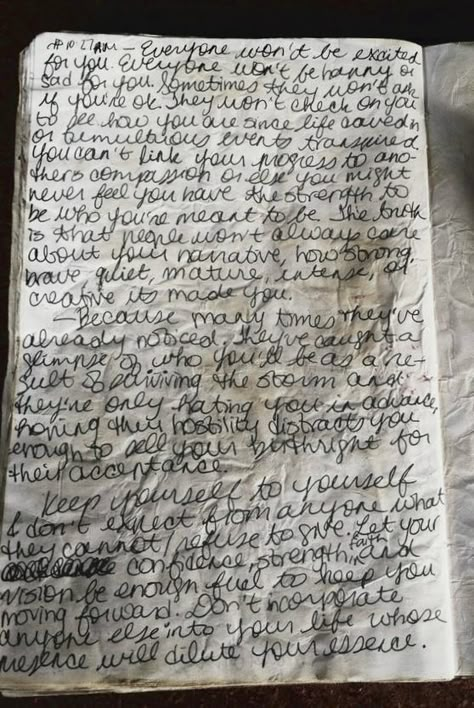 #10:27AM - Everyone won't be excited
for you. Everyone won't be happy or
sad for you. Sometimes they won't ask
if you're ok. They won't check on you
to see how you are since life caved in
or tumultuous events transpired.
You can't link your progress to ano-
thers compassion or else you might
never feel you have the strength to
be who you're meant to be. The truth
is that people won't always care
about your narrative, how strong,
brave, quiet, mature, intense, or
creative its made you.
- Because many times they've
already noticed. They've caught a
glimpse of who you'll be as a re-
sult of surviving the storm and
they're only hating you in advance,
hoping their hostility distracts you
enough to sell your birthright for
their acceptance.
Keep yourself to yourself
& don't expect from anyone what
they cannot/refuse to give. Let your
confidence, strength, faith and
vision be enough fuel to keep you
moving forward. Don't incorporate
anyone else into your life whose
presence will dilute your essence.